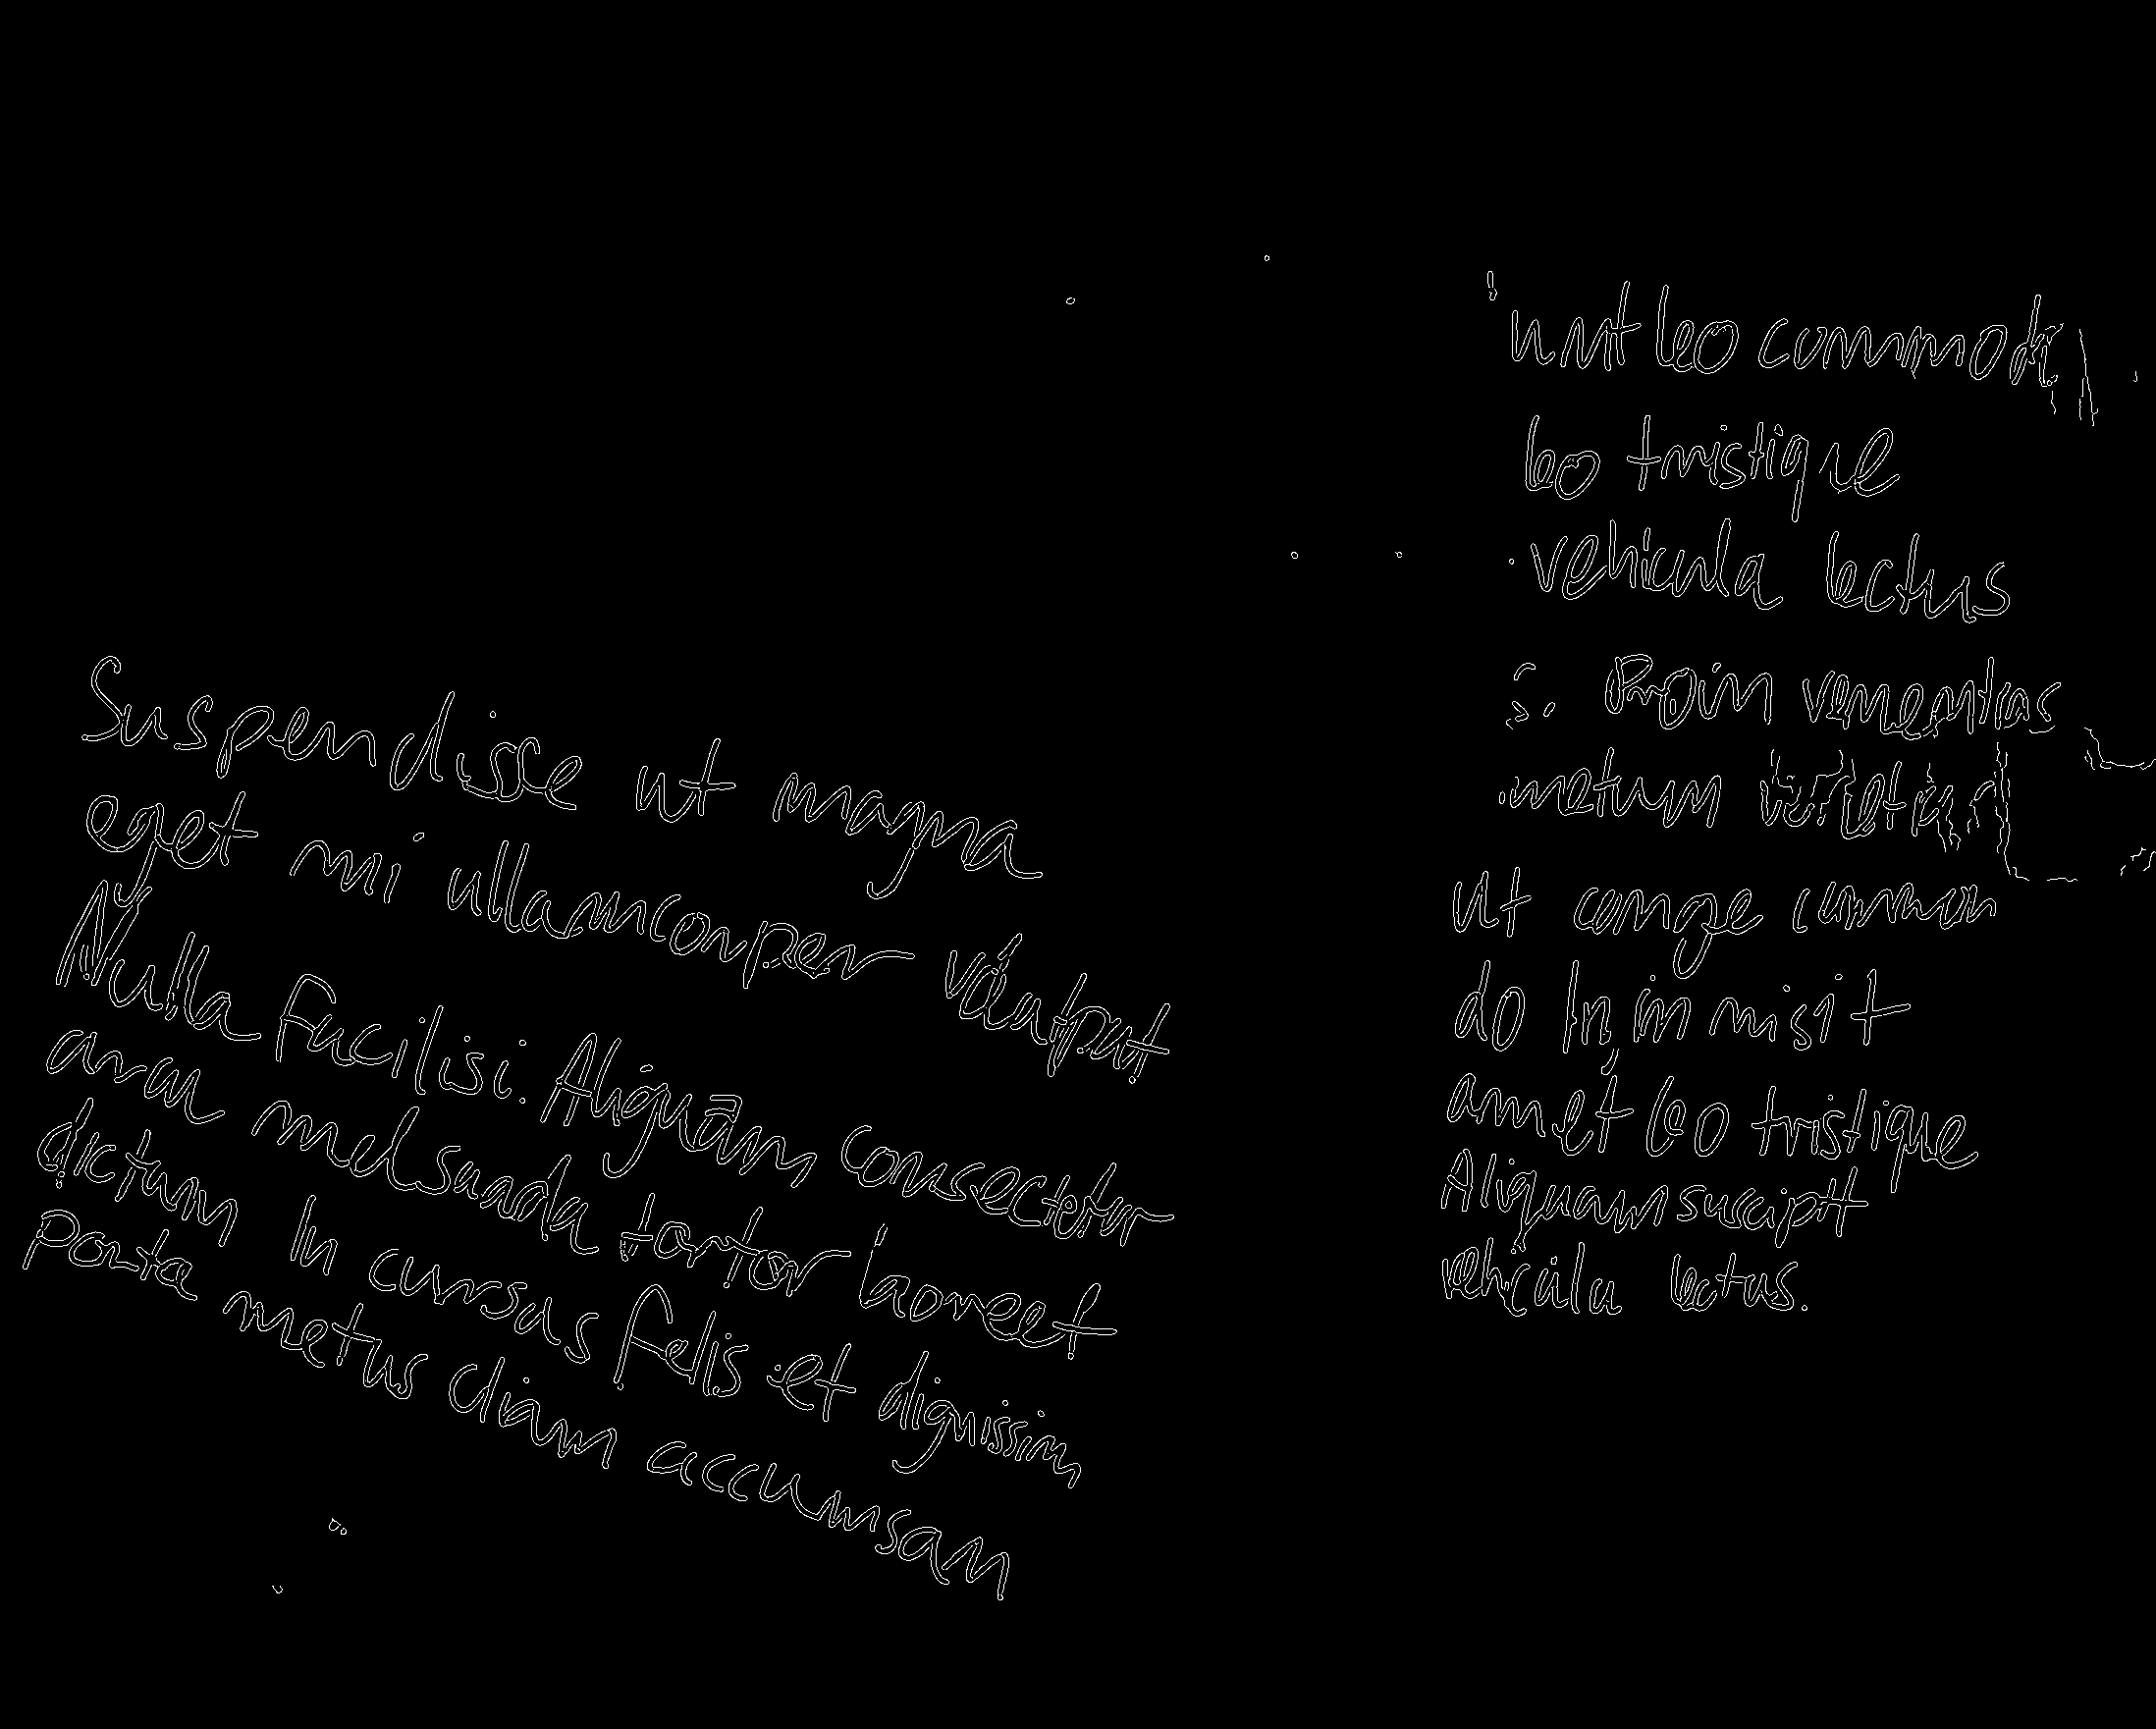 Suspendisse ut magna
eget mi ullamcorper volutpat
Nulla Facilisi. Aliquam consectetur
arcu melsuada tortor laoreet
dictum In cursus felis et dignissim
Porta metus diam accumsan
ut leo commodo
leo tristique
vehicula lectus
Proin
metum
Ut conge common
do In, in mi sit
amet leo tristique
Aliquam suscipit
vehicula lectus.